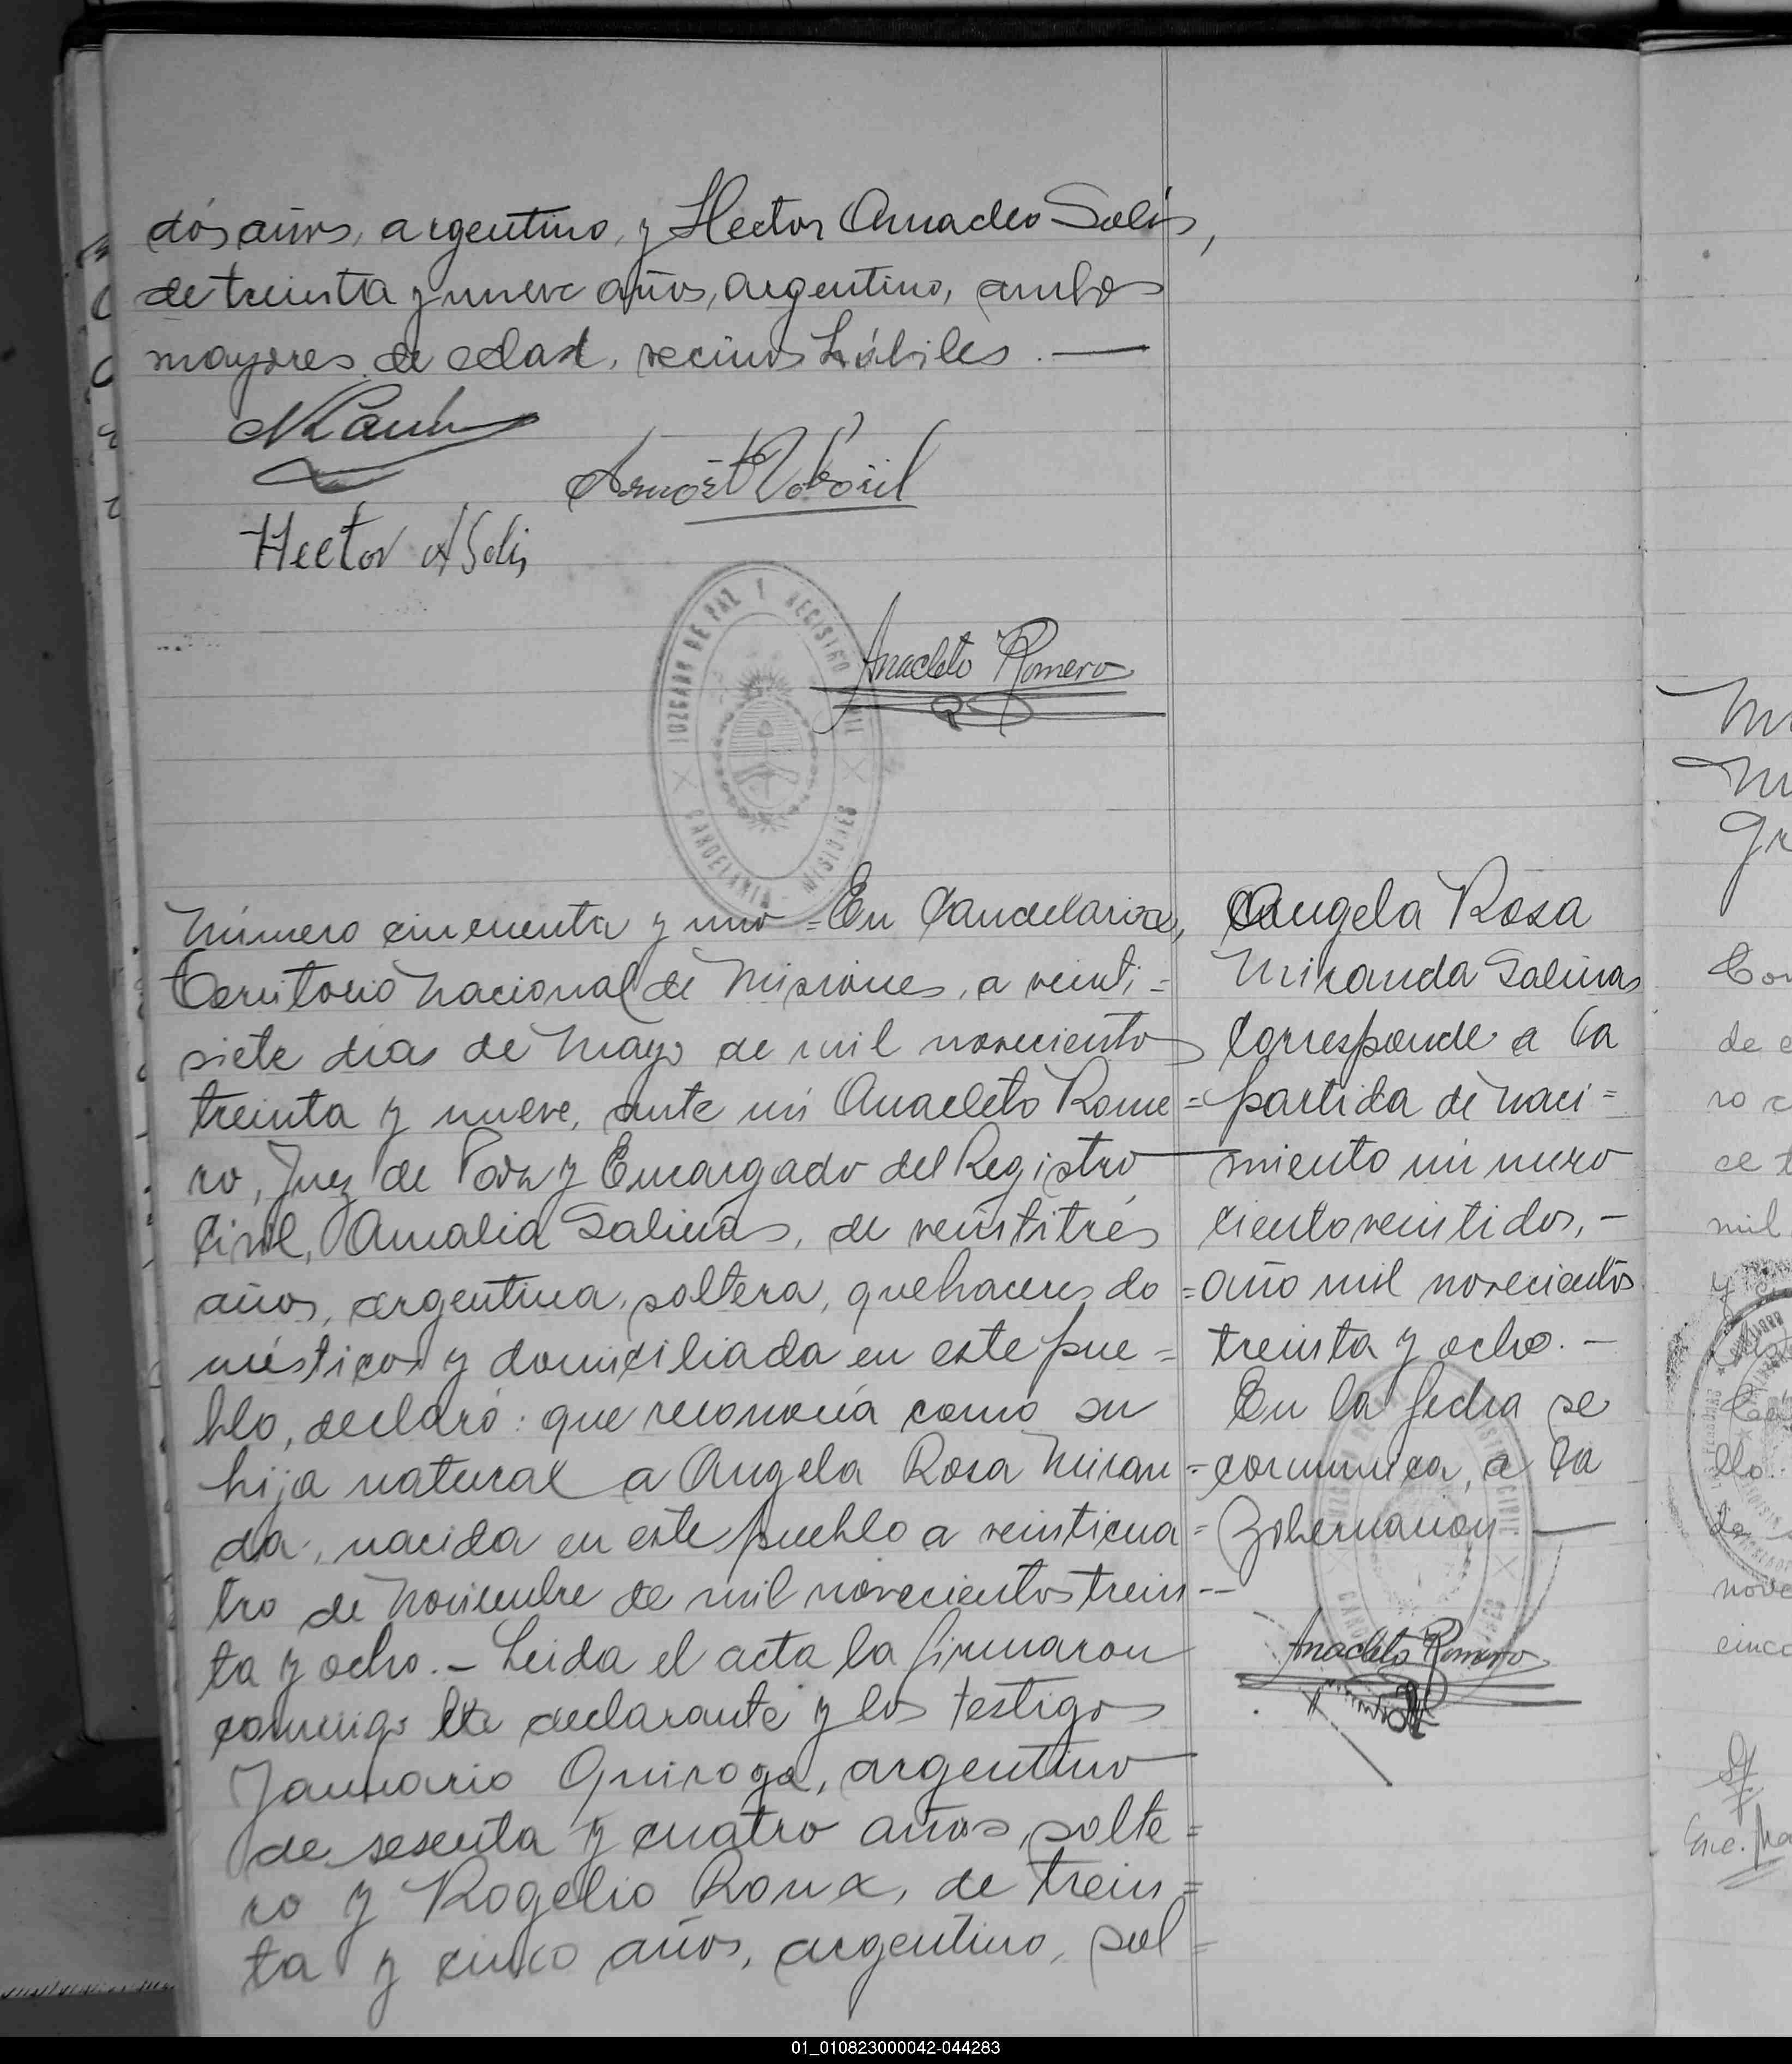 dós años, argentino, y Hector Amadeo Solis,
de treinta y nueve años, argentino, ambos
mayores de edad, vecinos hábiles. —
Hector A Solis
JUZGADO DE PAZ Y REGISTRO CIVIL
CANDELARIA - MISIONES
Anacleto Romero
Número cincuenta y uno = En Candelaria,
Territorio Nacional de Misiones, a veinti=
siete días de Mayo de mil novecientos
treinta y nueve, ante mí Anacleto Rome=
ro, Juez de Paz y Encargado del Registro
Civil, Amalia Salinas, de veintitrés
años, argentina, soltera, quehaceres do=
mésticos y domiciliada en este pue=
blo, declaró: que reconocía como su
hija natural a Angela Rosa Miran=
da, nacida en este pueblo a veinticua=
tro de Noviembre de mil novecientos trein--
ta y ocho. - Leida el acta la firmaron
conmigo la declarante y los testigos
Januario Quiroga, argentino
de sesenta y cuatro años, solte=
ro y Rogelio Roux, de trein=
ta y cinco años, argentino, sol=
Angela Rosa
Miranda Salinas
Corresponde a la
partida de naci=
miento número
ciento veintidos, -
año mil novecientos
treinta y ocho. -
En la fecha se
comunica, a la
Gobernación —
Anacleto Romero
de
mil
cinco
01_010823000042-044283